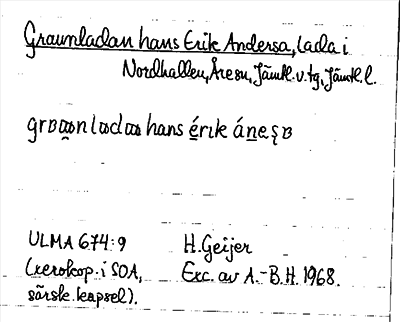 Graunladan hans Erik Andersa, lada i
Nordhallen, Åre sn, Jämtl. v. tg, Jämtl. l.
hans érik
ULMA 674:9 H. Geijer
(xerokop. i SOA, Exc. av A.-B.H. 1968.
särsk. kapsel).